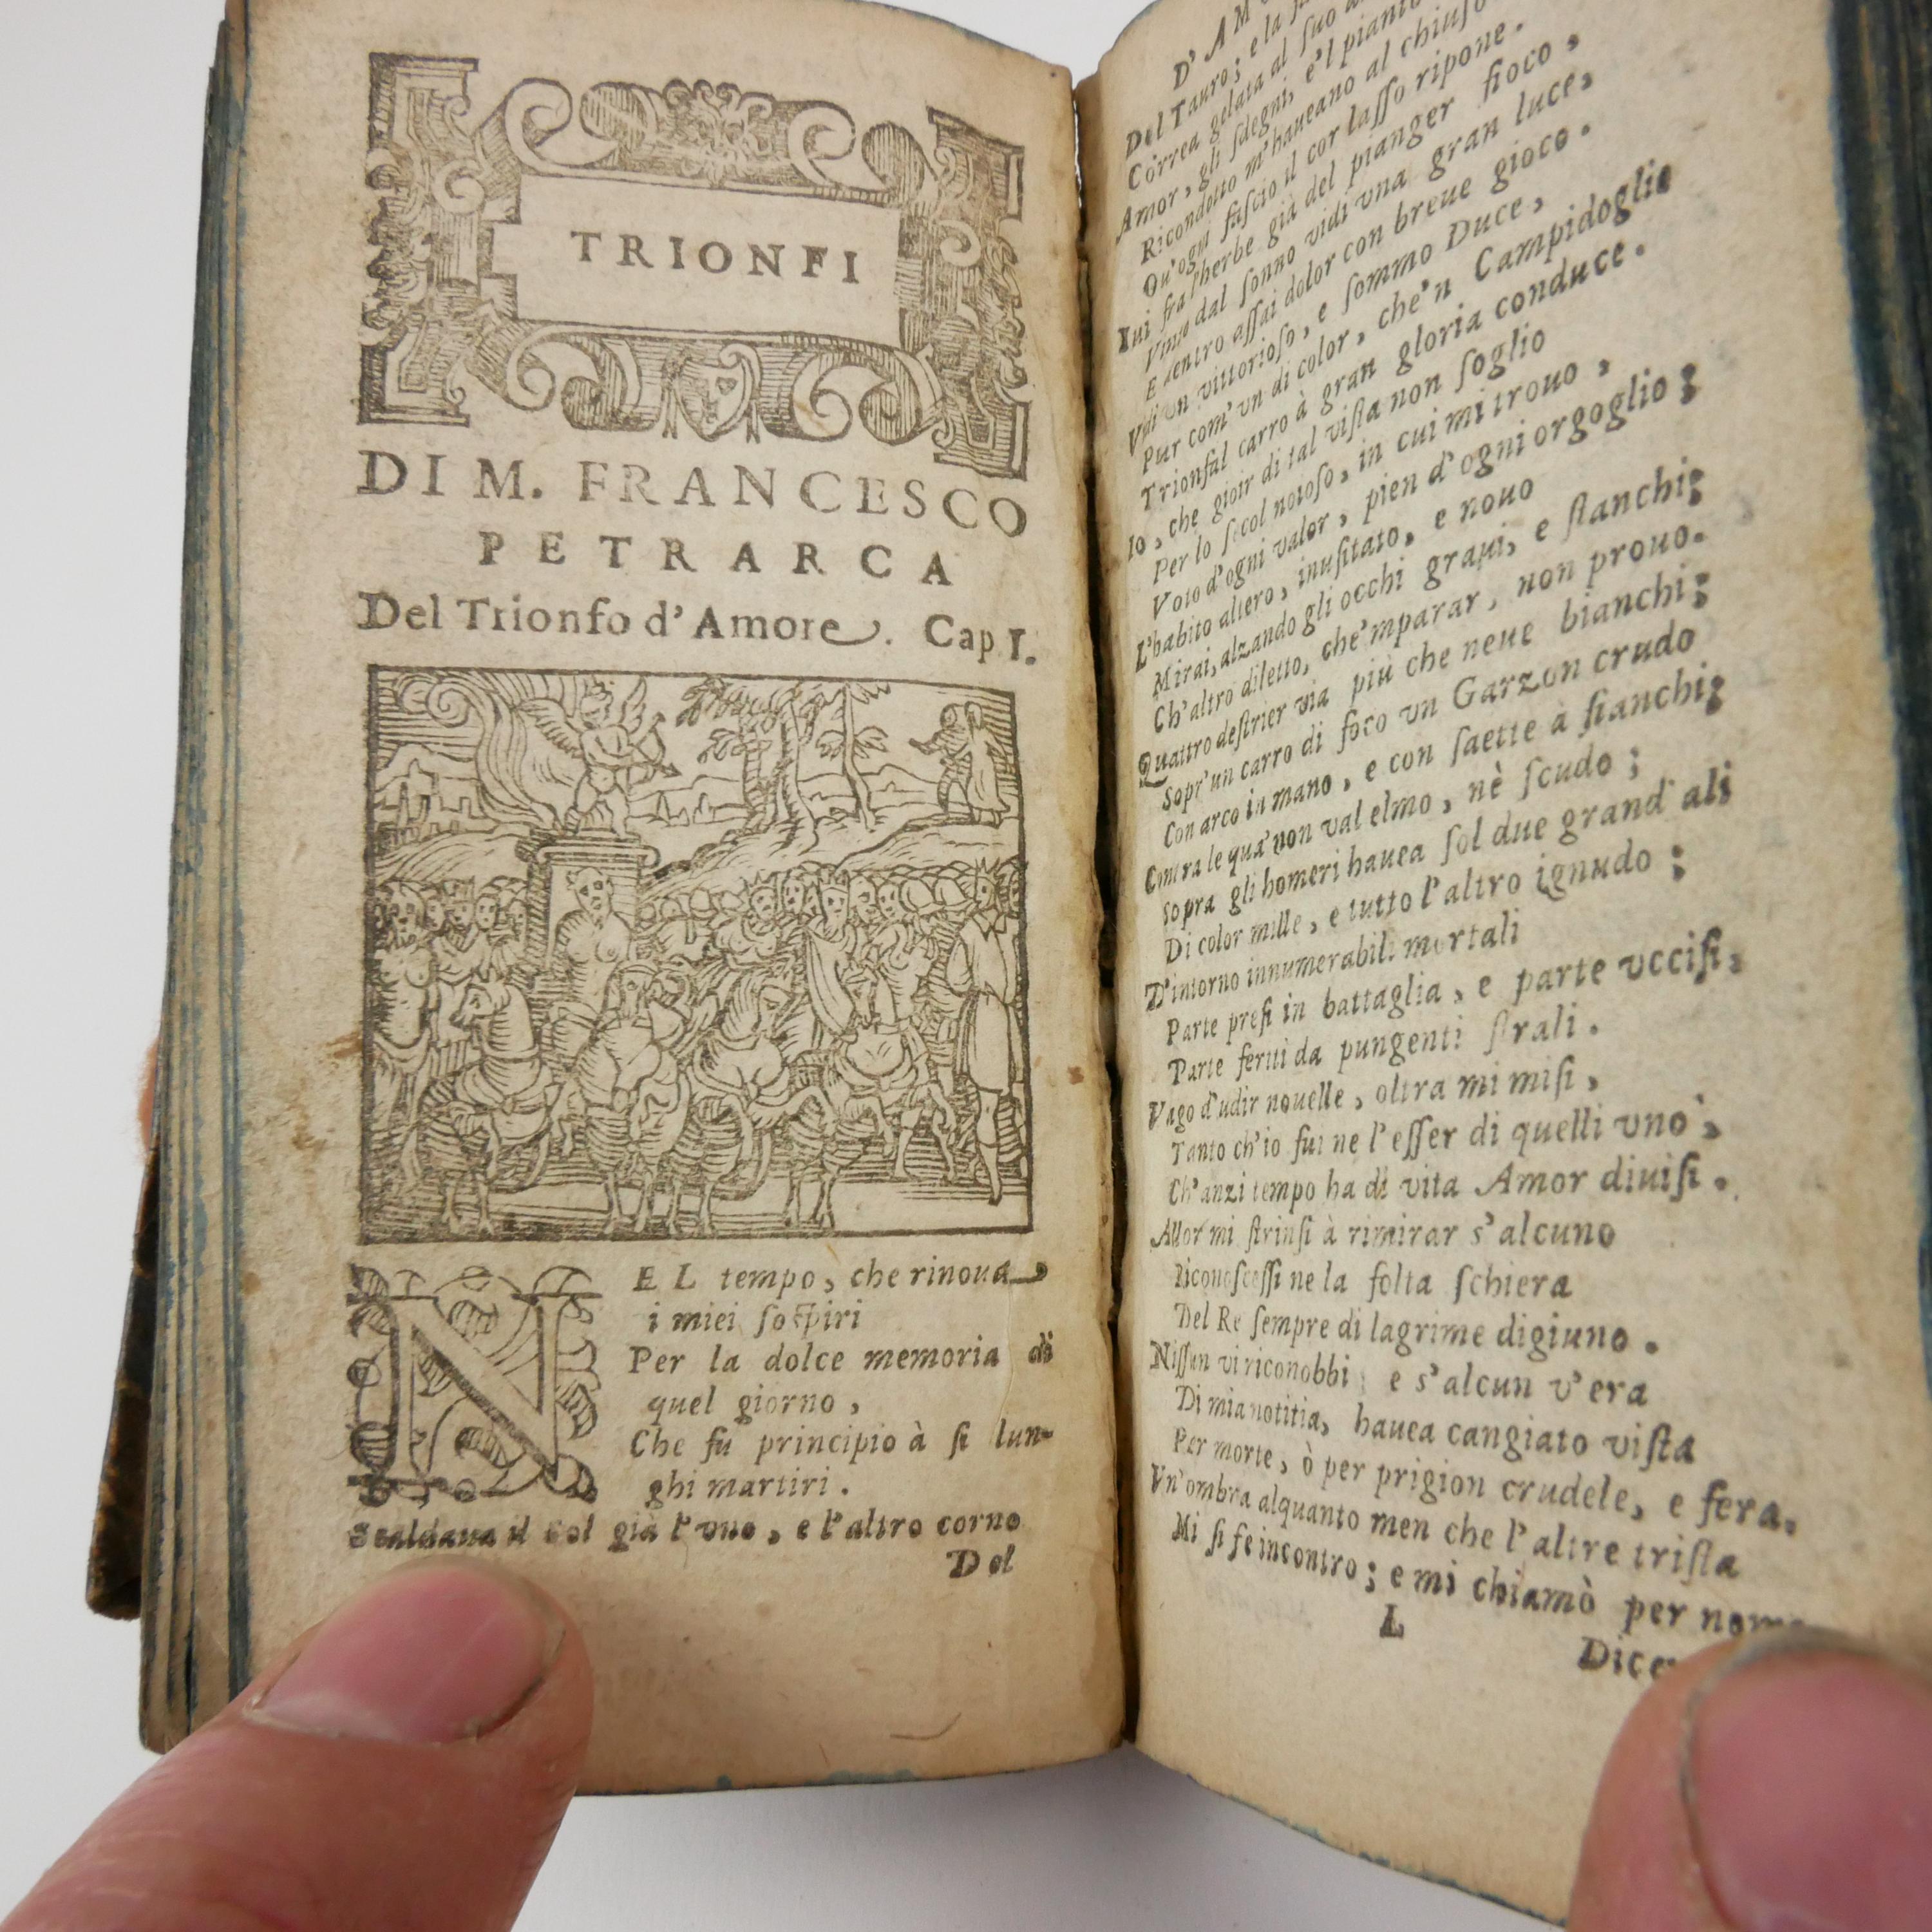 TRIONFI
DI M. FRANCESCO
PETRARCA
Del Trionfo d'Amore. Cap I.
NEL tempo, che rinoua
i miei soſpiri
Per la dolce memoria di
quel giorno,
Che fu principio à ſi lun-
ghi martiri.
Scaldaua il Sol già l'vno, e l'altro corno
Del
D' AM
Del Tauro; e la
Correa gelata al ſuo
Amor, gli ſdegni, e'l pianto
Ricondotto m'haueano al chiuſo
Ou'ogni faſcio il cor laſſo ripone.
Iui fra l'herbe già del pianger fioco,
Vinto dal ſonno vidi vna gran luce,
E dentro aſſai dolor con breue gioco.
Vidi vn vittorioſo, e ſommo Duce,
Pur com' vn di color, che'n Campidoglio
Trionfal carro à gran gloria conduce.
Io, che gioir di tal viſta non ſoglio
Per lo ſecol noioſo, in cui mi trouo,
Voto d'ogni valor, pien d'ogni orgoglio;
L'habito altero, inuſitato, e nouo
Mirai, alzando gli occhi graui, e ſtanchi;
Ch'altro diletto, che'mparar, non prouo.
Quattro deſtrier via più che neue bianchi;
Sopr'un carro di foco vn Garzon crudo
Con arco in mano, e con ſaette à fianchi;
Contra le qua' non val elmo, nè ſcudo;
Sopra gli homeri hauea ſol due grand' ali
Di color mille, e tutto l'altro ignudo;
D'intorno innumerabili mortali
Parte preſi in battaglia, e parte vcciſi,
Parte feriti da pungenti ſtrali.
Vago d'udir nouelle, oltra mi miſi,
Tanto ch'io fui ne l'eſſer di quelli vno,
Ch'anzi tempo ha di vita Amor diuiſi.
Allor mi ſtrinſi à rimirar s'alcuno
Riconoſceſſi ne la folta ſchiera
Del Re ſempre di lagrime digiuno.
Niſſun vi riconobbi; e s'alcun v'era
Di mia notitia, hauea cangiato viſta
Per morte, ò per prigion crudele, e fera.
Vn'ombra alquanto men che l'altre triſta
Mi ſi fe incontro; e mi chiamò per nome
L